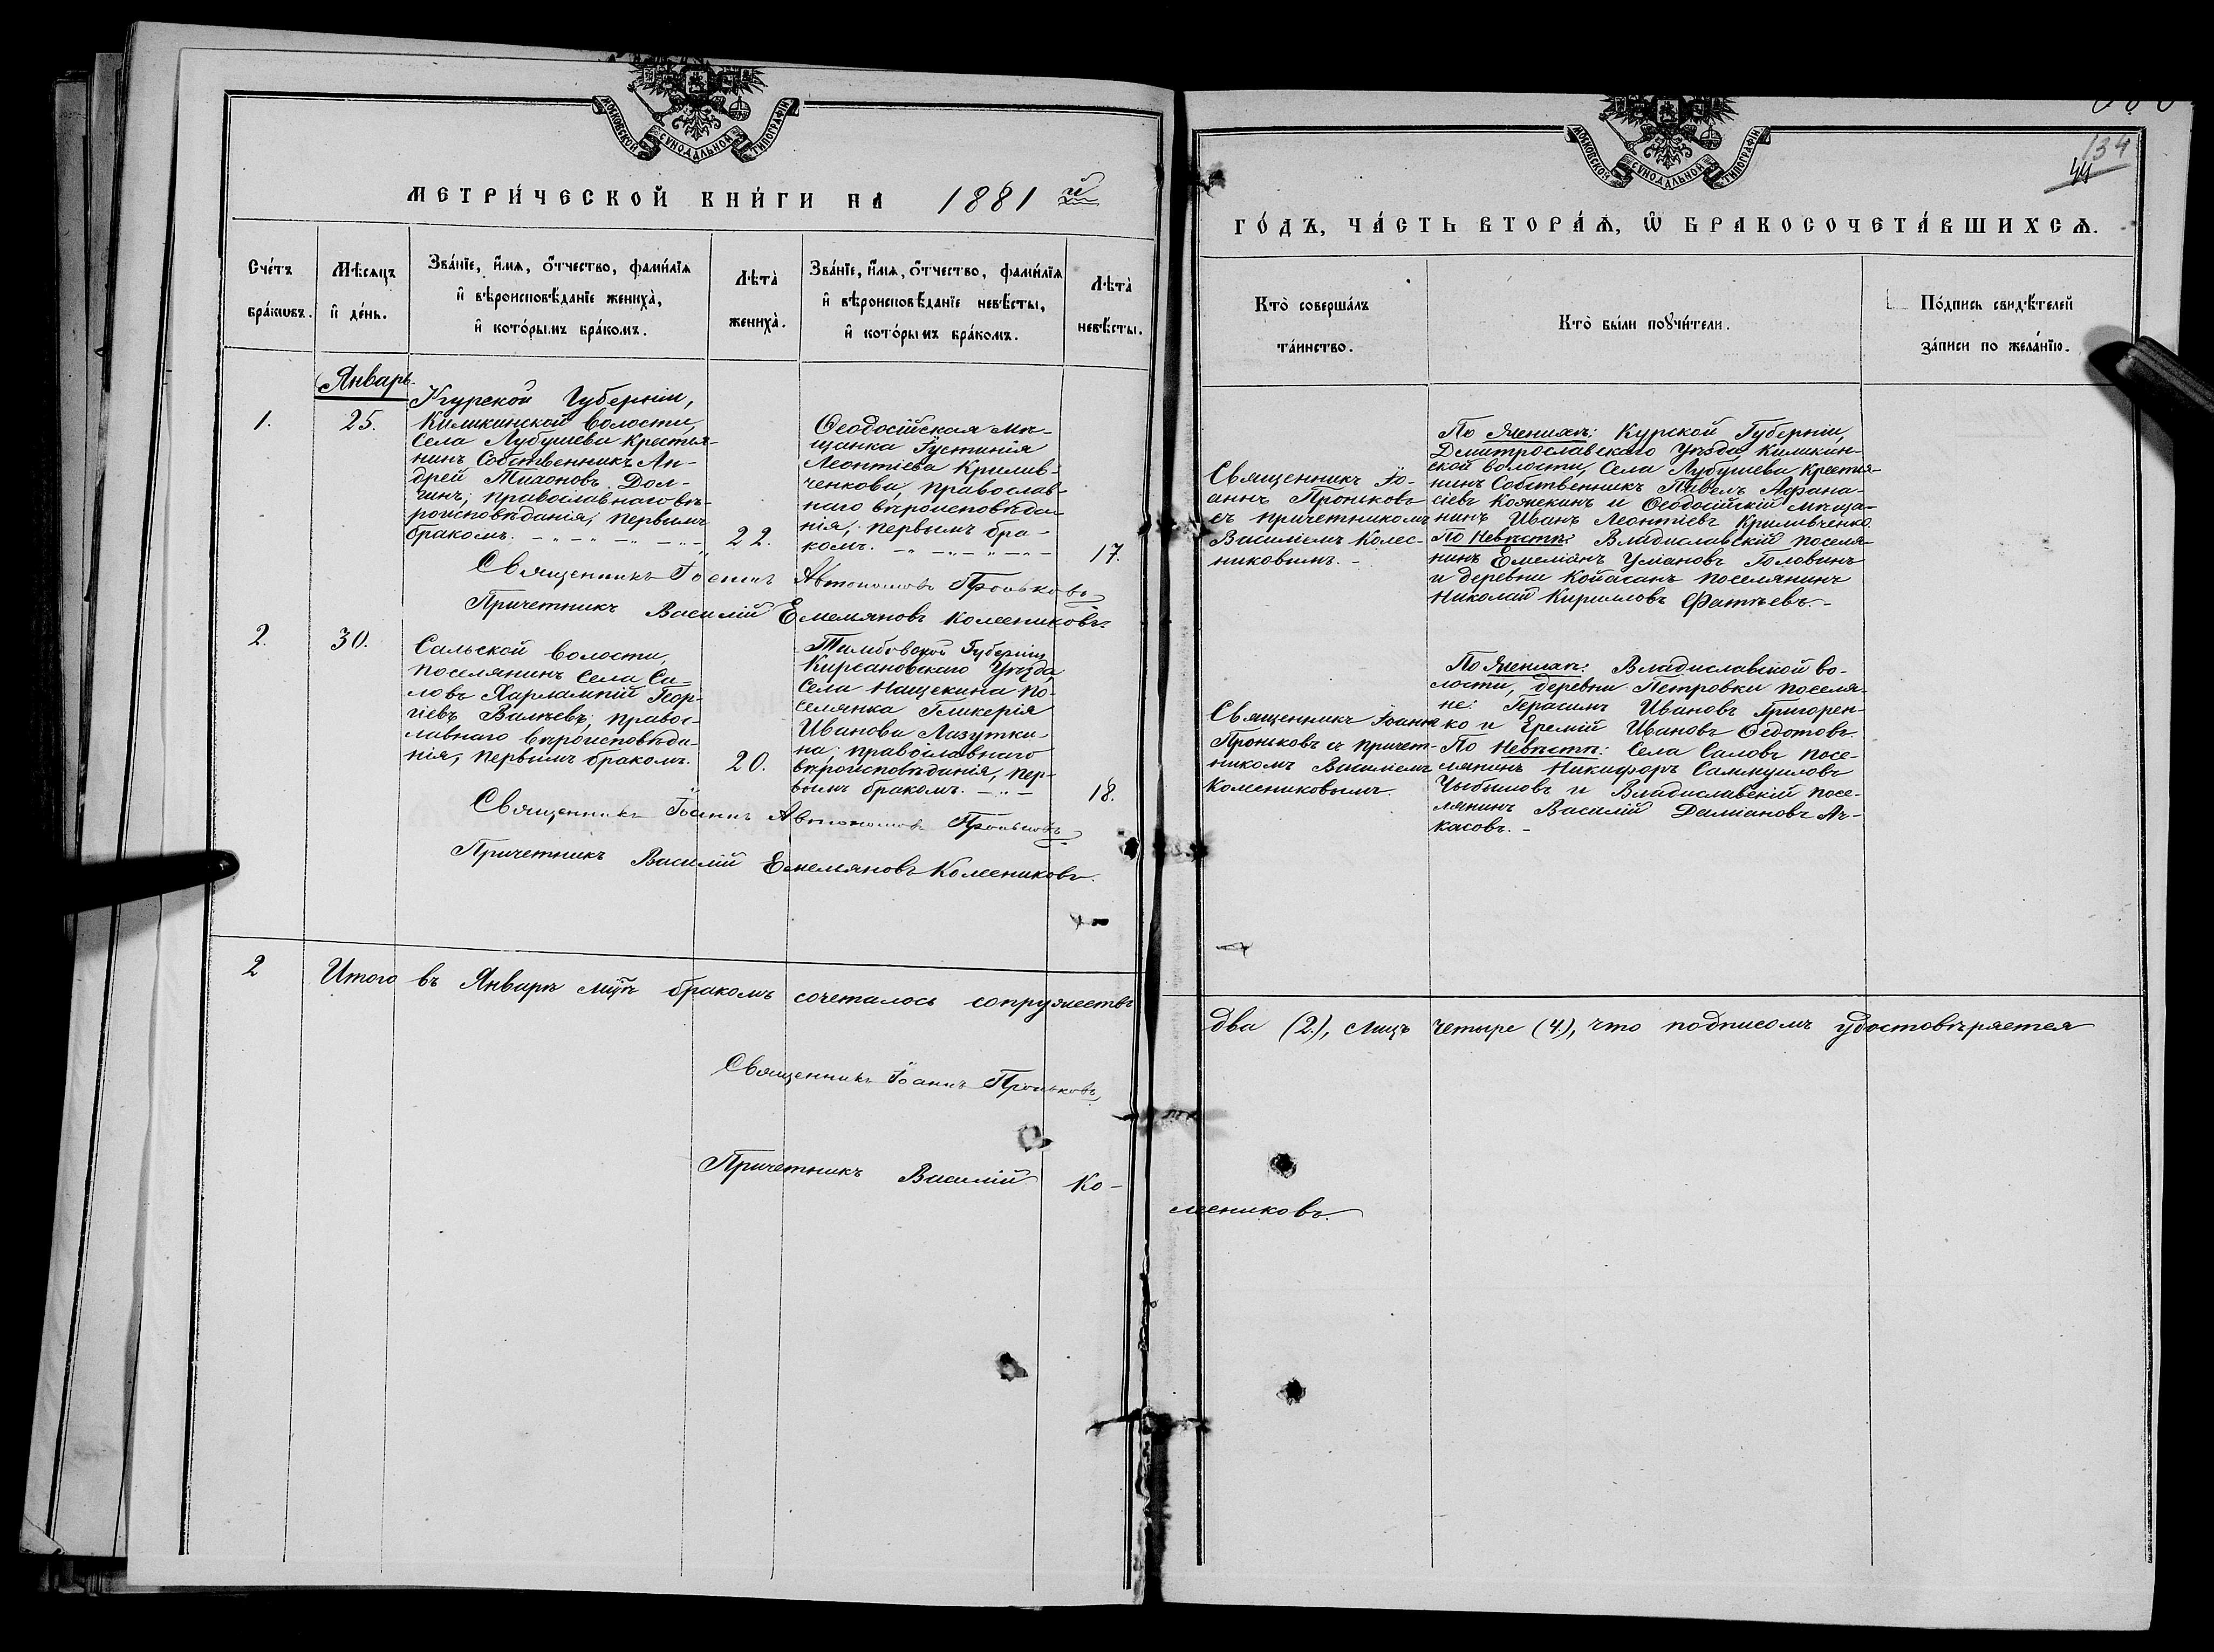 МОСКОВСКОЙ СѴНОДАЛЬНОЙ ТИПОГРАФІИ
МЕТРИ́ЧЕСКОЙ КНИ́ГИ НА 1881 й
Сче́тъ бра́ковъ.
Мѣсяцъ и де́нь.
Зва́нїе, и́мя, о́тчество, фами́лїя
и вѣроисповѣ́данїе жениха̀,
и кото́рымъ бра́комъ.
Лѣта̀
жениха̀.
Зва́нїе, и́мя, о́тчество, фами́лїя
и вѣроисповѣ́данїе невѣ́сты,
и кото́рымъ бра́комъ.
Лѣта̀
невѣ́сты.
Январь.
1.
25.
Курской Губерніи,
Киликинской волости,
села Лубушева Крестья-
нинъ Собственникъ Ан-
дрей Тихоновъ Дол-
гинъ, православнаго вѣ-
роисповѣданія, первымъ
бракомъ.
22.
Ѳеодосійская мѣ-
щанка Іустинія
Леонтіева Кривив-
ченкова, православ-
наго вѣроисповѣда-
нія, первымъ бра-
комъ.
17.
Священникъ Іоаннъ Автономовъ Проньковъ
Причетникъ Василій Емельяновъ Колесниковъ.
2.
30.
Сальской волости,
поселянинъ села Са-
ловъ Харлампій Геор-
гіевъ Валчевъ, правос-
лавнаго вѣроисповѣда-
нія, первымъ бракомъ.
20.
Тамбовской Губерніи
Кирсановскаго Уѣзда
села Нащекина по-
селянка Гликерія
Иванова Лазутки-
на, православнаго
вѣроисповѣданія, пер-
вымъ бракомъ.
18.
Священникъ Іоаннъ Автономовъ Проньковъ
Причетникъ Василій Емельяновъ Колесниковъ.
2
Итого въ Январѣ мцѣ бракомъ сочеталось супружествъ
Священникъ Іоаннъ Проньковъ
Причетникъ Василій Ко-
МОСКОВСКОЙ СѴНОДАЛЬНОЙ ТИПОГРАФІИ
134
44
ГО́ДЪ, ЧА́СТЬ ВТОРА́Ѧ, Ѡ БРАКОСОЧЕТА́ВШИХСѦ.
Кто̀ соверша́лъ
та́инство.
Кто̀ бы́ли поꙋчи́тели.
По́дпись свидѣ́телей
за́писи по жела́нїю.
Священникъ Іо-
аннъ Проньковъ
съ причетникомъ
Василіемъ Колес-
никовымъ.
По Женихѣ: Курской Губерніи,
Дмитрославскаго Уѣзда, Киликин-
ской волости, Села Лубушева Крестья-
нинъ Собственникъ Павелъ Афана-
сіевъ Кожекинъ и Ѳеодосійскій мѣща-
нинъ Иванъ Леонтіевъ Крививченко.
По Невѣстѣ: Владиславскій поселя-
нинъ Емеліанъ Уліановъ Головинъ
и деревни Койасанъ поселянинъ
Николай Кирилловъ Фатѣевъ.
Священникъ Іоаннъ
Проньковъ съ причет-
никомъ Василіемъ
Колесниковымъ.
По Женихѣ: Владиславской во-
лости, деревни Петровки поселя-
не: Герасимъ Ивановъ Григорен-
ко и Еремій Ивановъ Ѳедотовъ.
По Невѣстѣ: Села Саловъ посе-
лянинъ Никифоръ Саммуиловъ
Чыбышовъ и Владиславскій посе-
лянинъ Василій Даміановъ Ач-
касовъ.
два (2.), лицъ четыре (4.), что подписомъ удостовѣряется
лесниковъ.